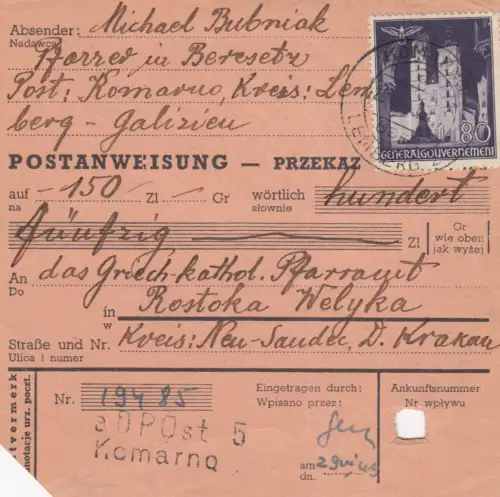 Absender: Michael Bubniak
Nadawca:
Pfarrer in Beresetz
Post: Komarno, Kreis: Lem
berg - Galizien
80
GENERALGOUVERNEMENT
POSTANWEISUNG — PRZEKAZ
auf -150- Zl Gr wörtlich hundert
na słownie
fünfzig Zl Gr
wie oben
jak wyżej
An das Griech.-kathol. Pfarramt
Do
in Rostoka Welyka
w
Straße und Nr. Kreis: Neu-Sandec, D. Krakau
Ulica i numer
Nr. 194 85
Eingetragen durch:
Wpisano przez:
Ankunftsnummer
Nr wpływu
aDPOst 5
Komarno
am
dn.
tvermerk
notacje urz. poczt.